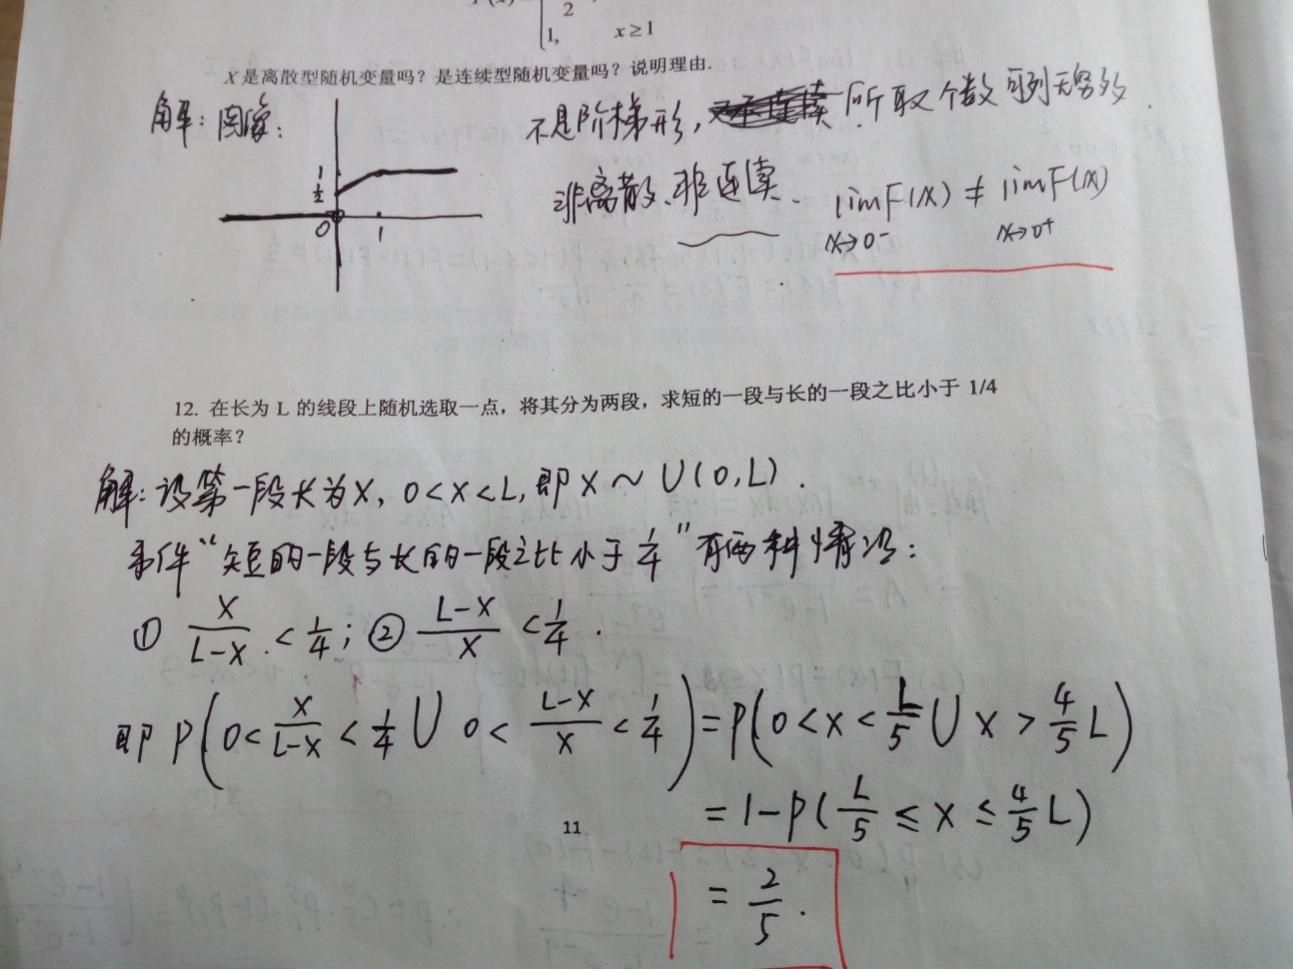 1, x≥1
X 是离散型随机变量吗？是连续型随机变量吗？说明理由.
解：图像：
1
1/2
0 1
不是阶梯形， 所取个数可列无穷多.
非离散、非连续. lim F(x) ≠ lim F(x)
x→0⁻ x→0⁺
12. 在长为 L 的线段上随机选取一点，将其分为两段，求短的一段与长的一段之比小于 1/4
的概率？
解：设第一段长为X, 0<X<L, 即 X ~ U(0,L).
事件“短的一段与长的一段之比小于 1/4”有两种情况：
① X/(L-X) < 1/4; ② (L-X)/X < 1/4.
即 P(0 < X/(L-X) < 1/4 ∪ 0 < (L-X)/X < 1/4) = P(0 < X < L/5 ∪ X > 4/5 L)
= 1-P(L/5 ≤ X ≤ 4/5 L)
11
= 2/5.